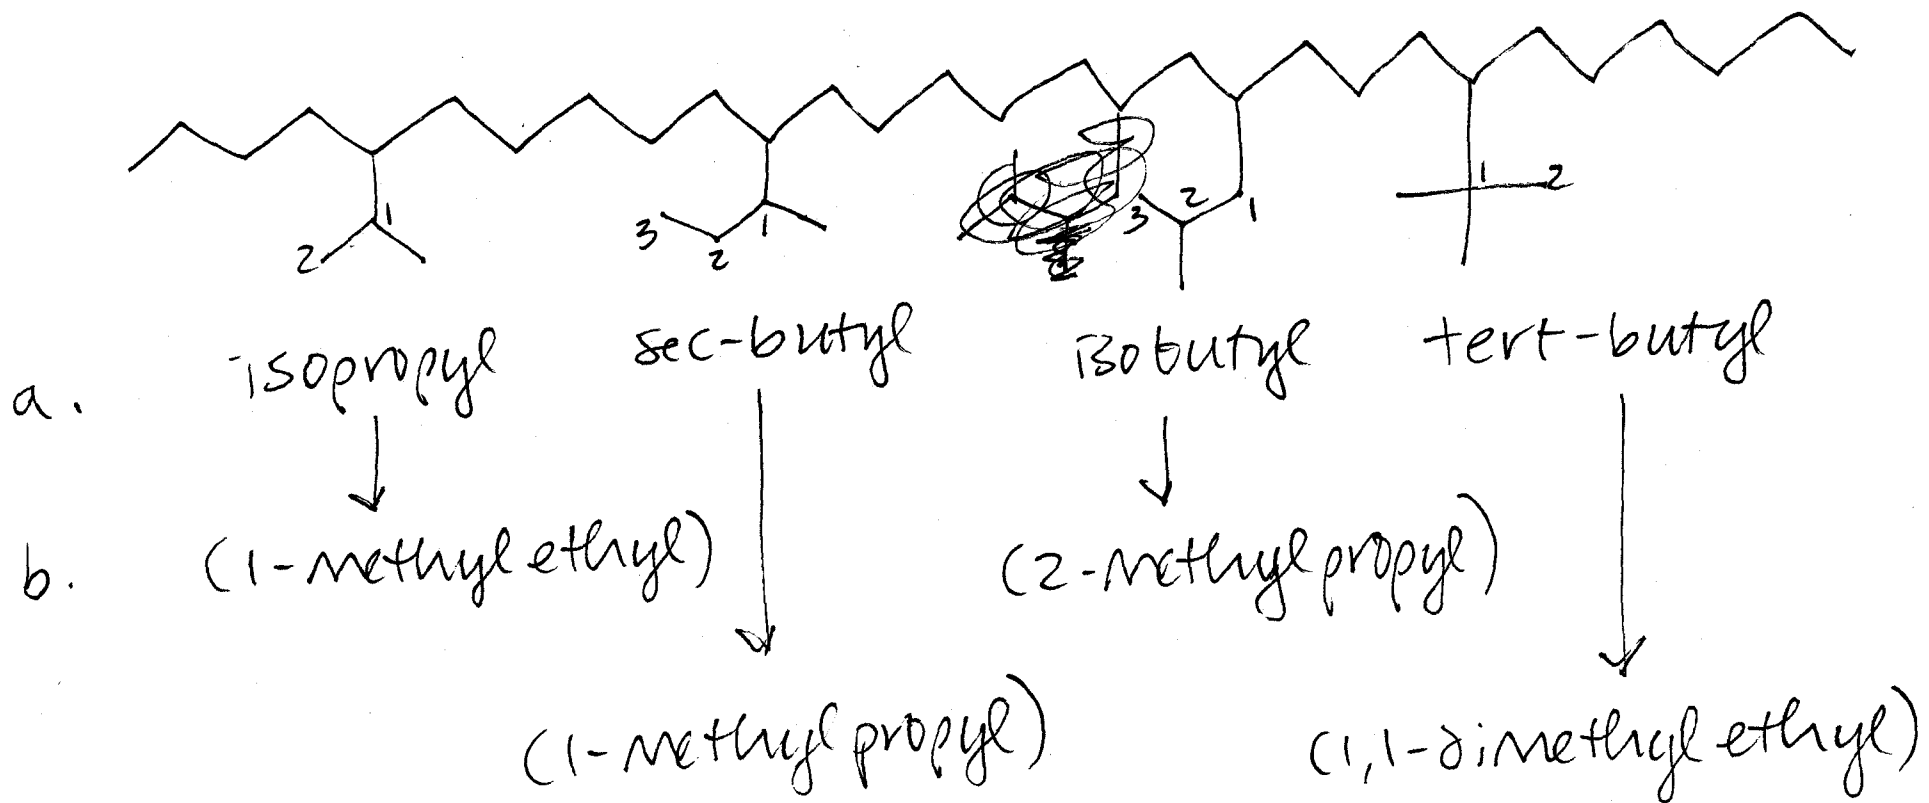 1 2
3 2 1
3 2 1
1 2
a. isopropyl sec-butyl isobutyl tert-butyl
b. (1-methylethyl) (2-methylpropyl)
(1-methylpropyl) (1,1-dimethylethyl)